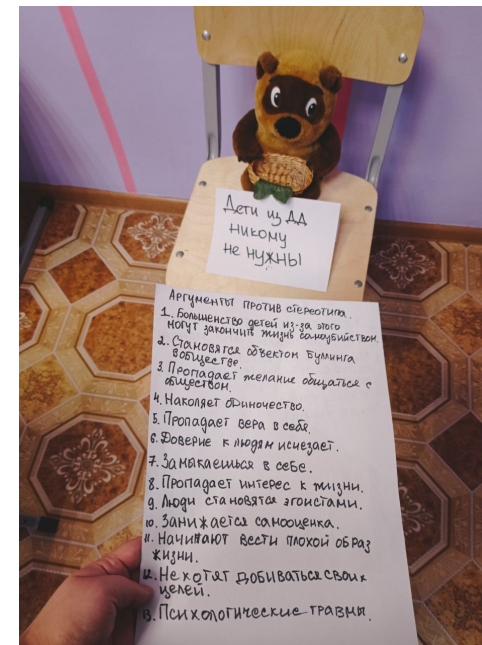 Дети из ДД
никому
не нужны
Аргументы против стереотипа.
1. Большенство детей из-за этого
могут закончить жизнь самоубийством.
2. Становятся объектом буминга
в обществе.
3. Пропадает желание общаться с
обществом.
4. Накопяет одиночество.
5. Пропадает вера в себя.
6. Доверие к людям исчезает.
7. Замыкаешься в себе.
8. Пропадает интерес к жизни.
9. Люди становятся эгоистами.
10. Занижается самооценка.
11. Начинают вести плохой образ
жизни.
12. Не хотят добиваться своих
целей.
13. Психологические травмы.